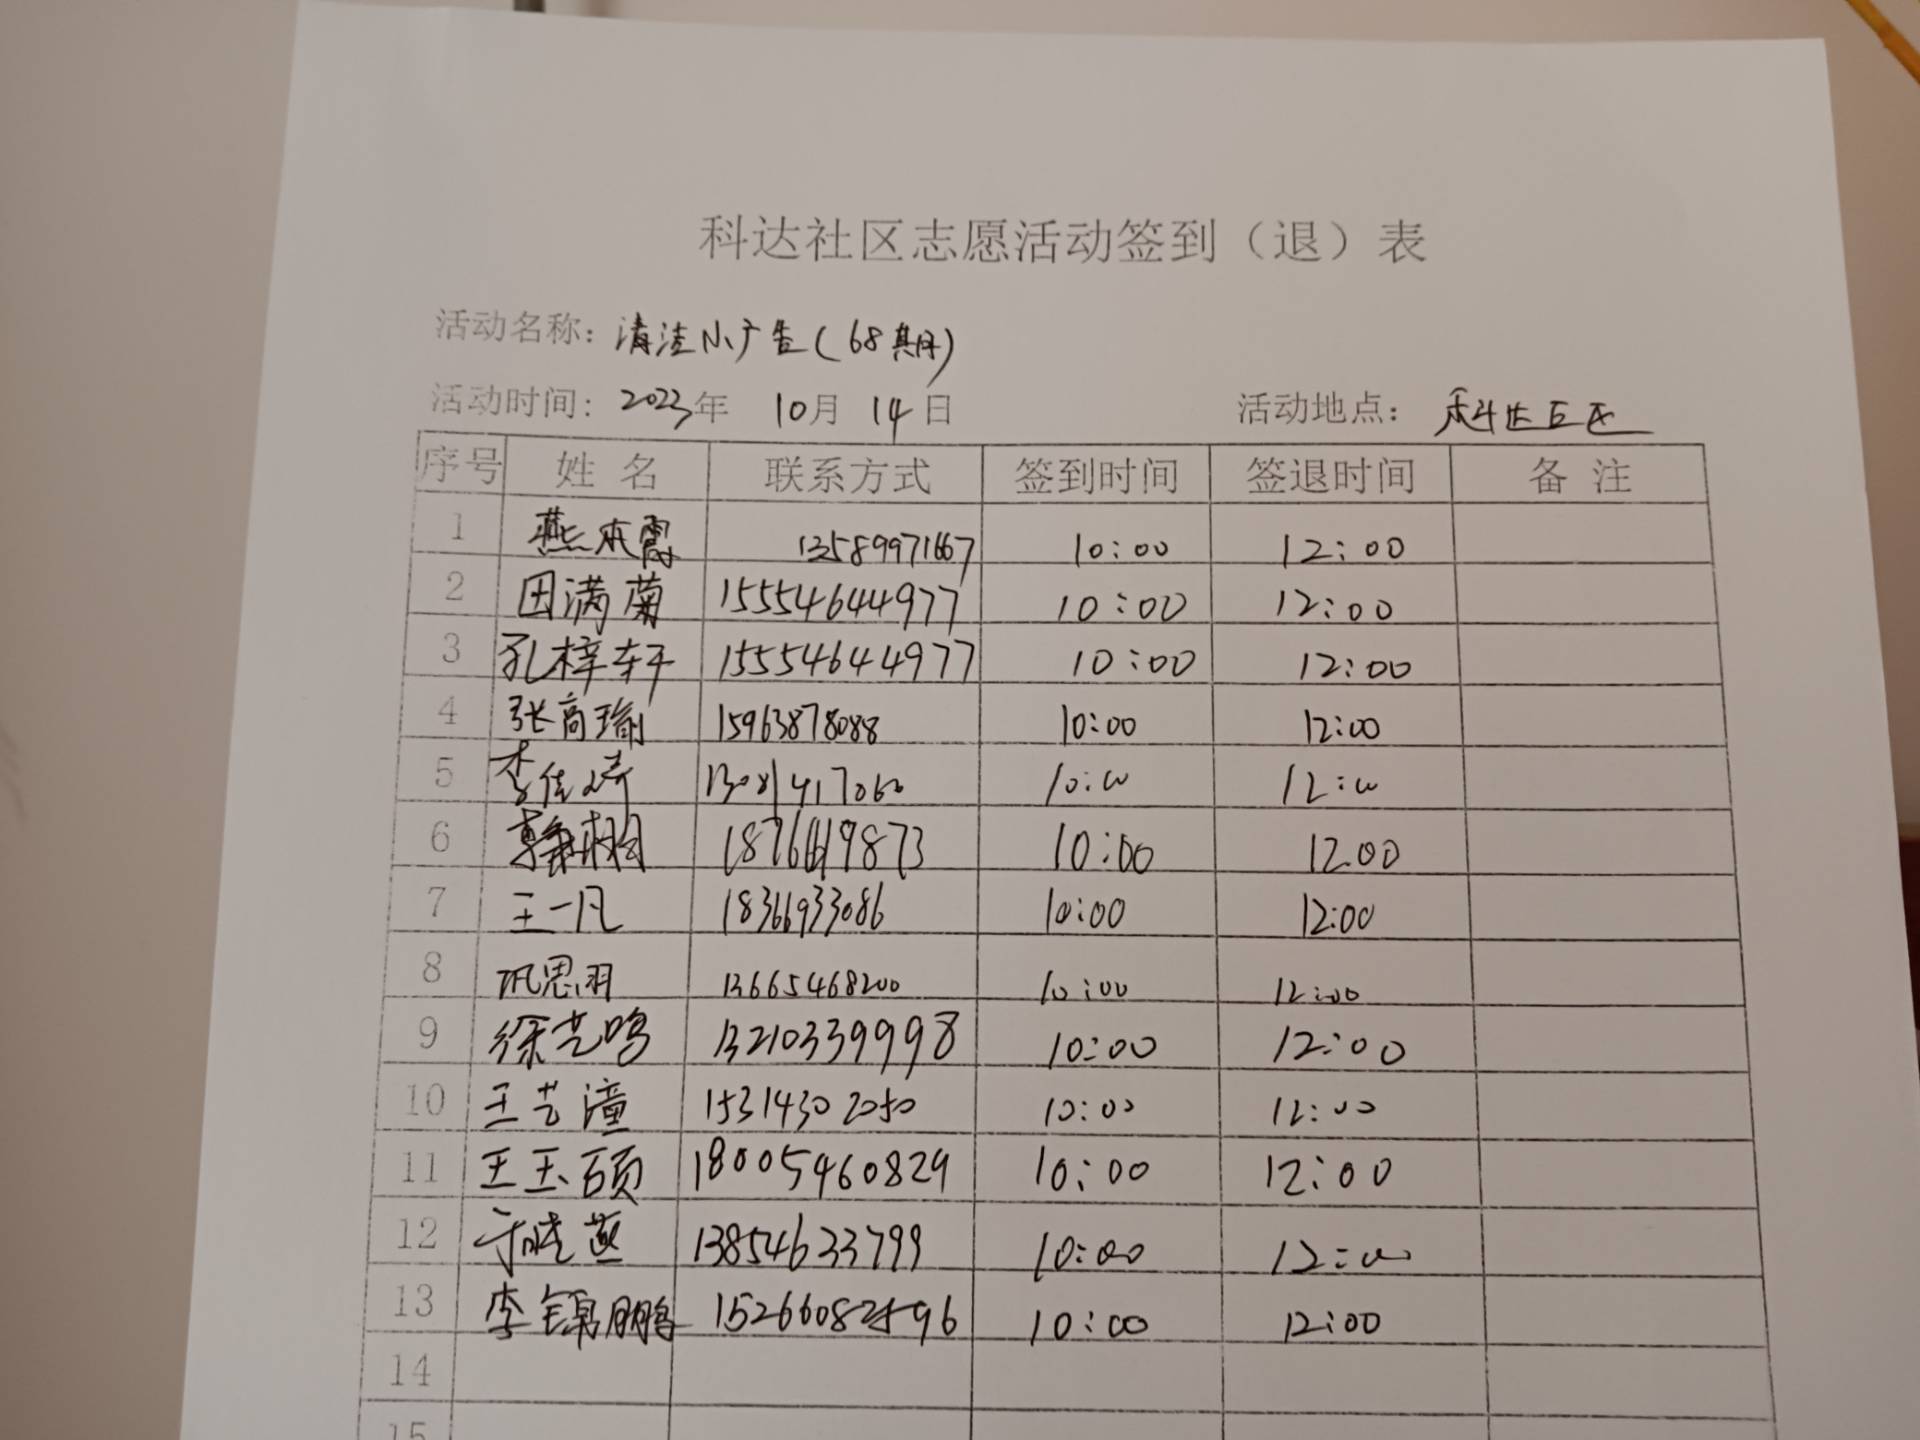 科达社区志愿活动签到（退）表
活动名称：清洁小广告(68期)
活动时间：2023年 10月 14日 活动地点：科达辖区
序号 姓名 联系方式 签到时间 签退时间 备注
1 燕本霞 13589971667 10:00 12:00
2 田满菊 15554644977 10:00 12:00
3 孔梓轩 15554644977 10:00 12:00
4 张高瑜 15963878088 10:00 12:00
5 李佳琦 10:00 12:00
6 10:00 12.00
7 王一凡 18366933086 10:00 12:00
8 巩思羽 13665468200 10:00 12:00
9 徐艺鸣 13210339998 10:00 12:00
10 王艺潼 15314302050 10:00 12:00
11 王玉硕 18005460829 10:00 12:00
12 于晓燕 13854633799 10:00 12:00
13 李锦鹏 15266082596 10:00 12:00
14
15